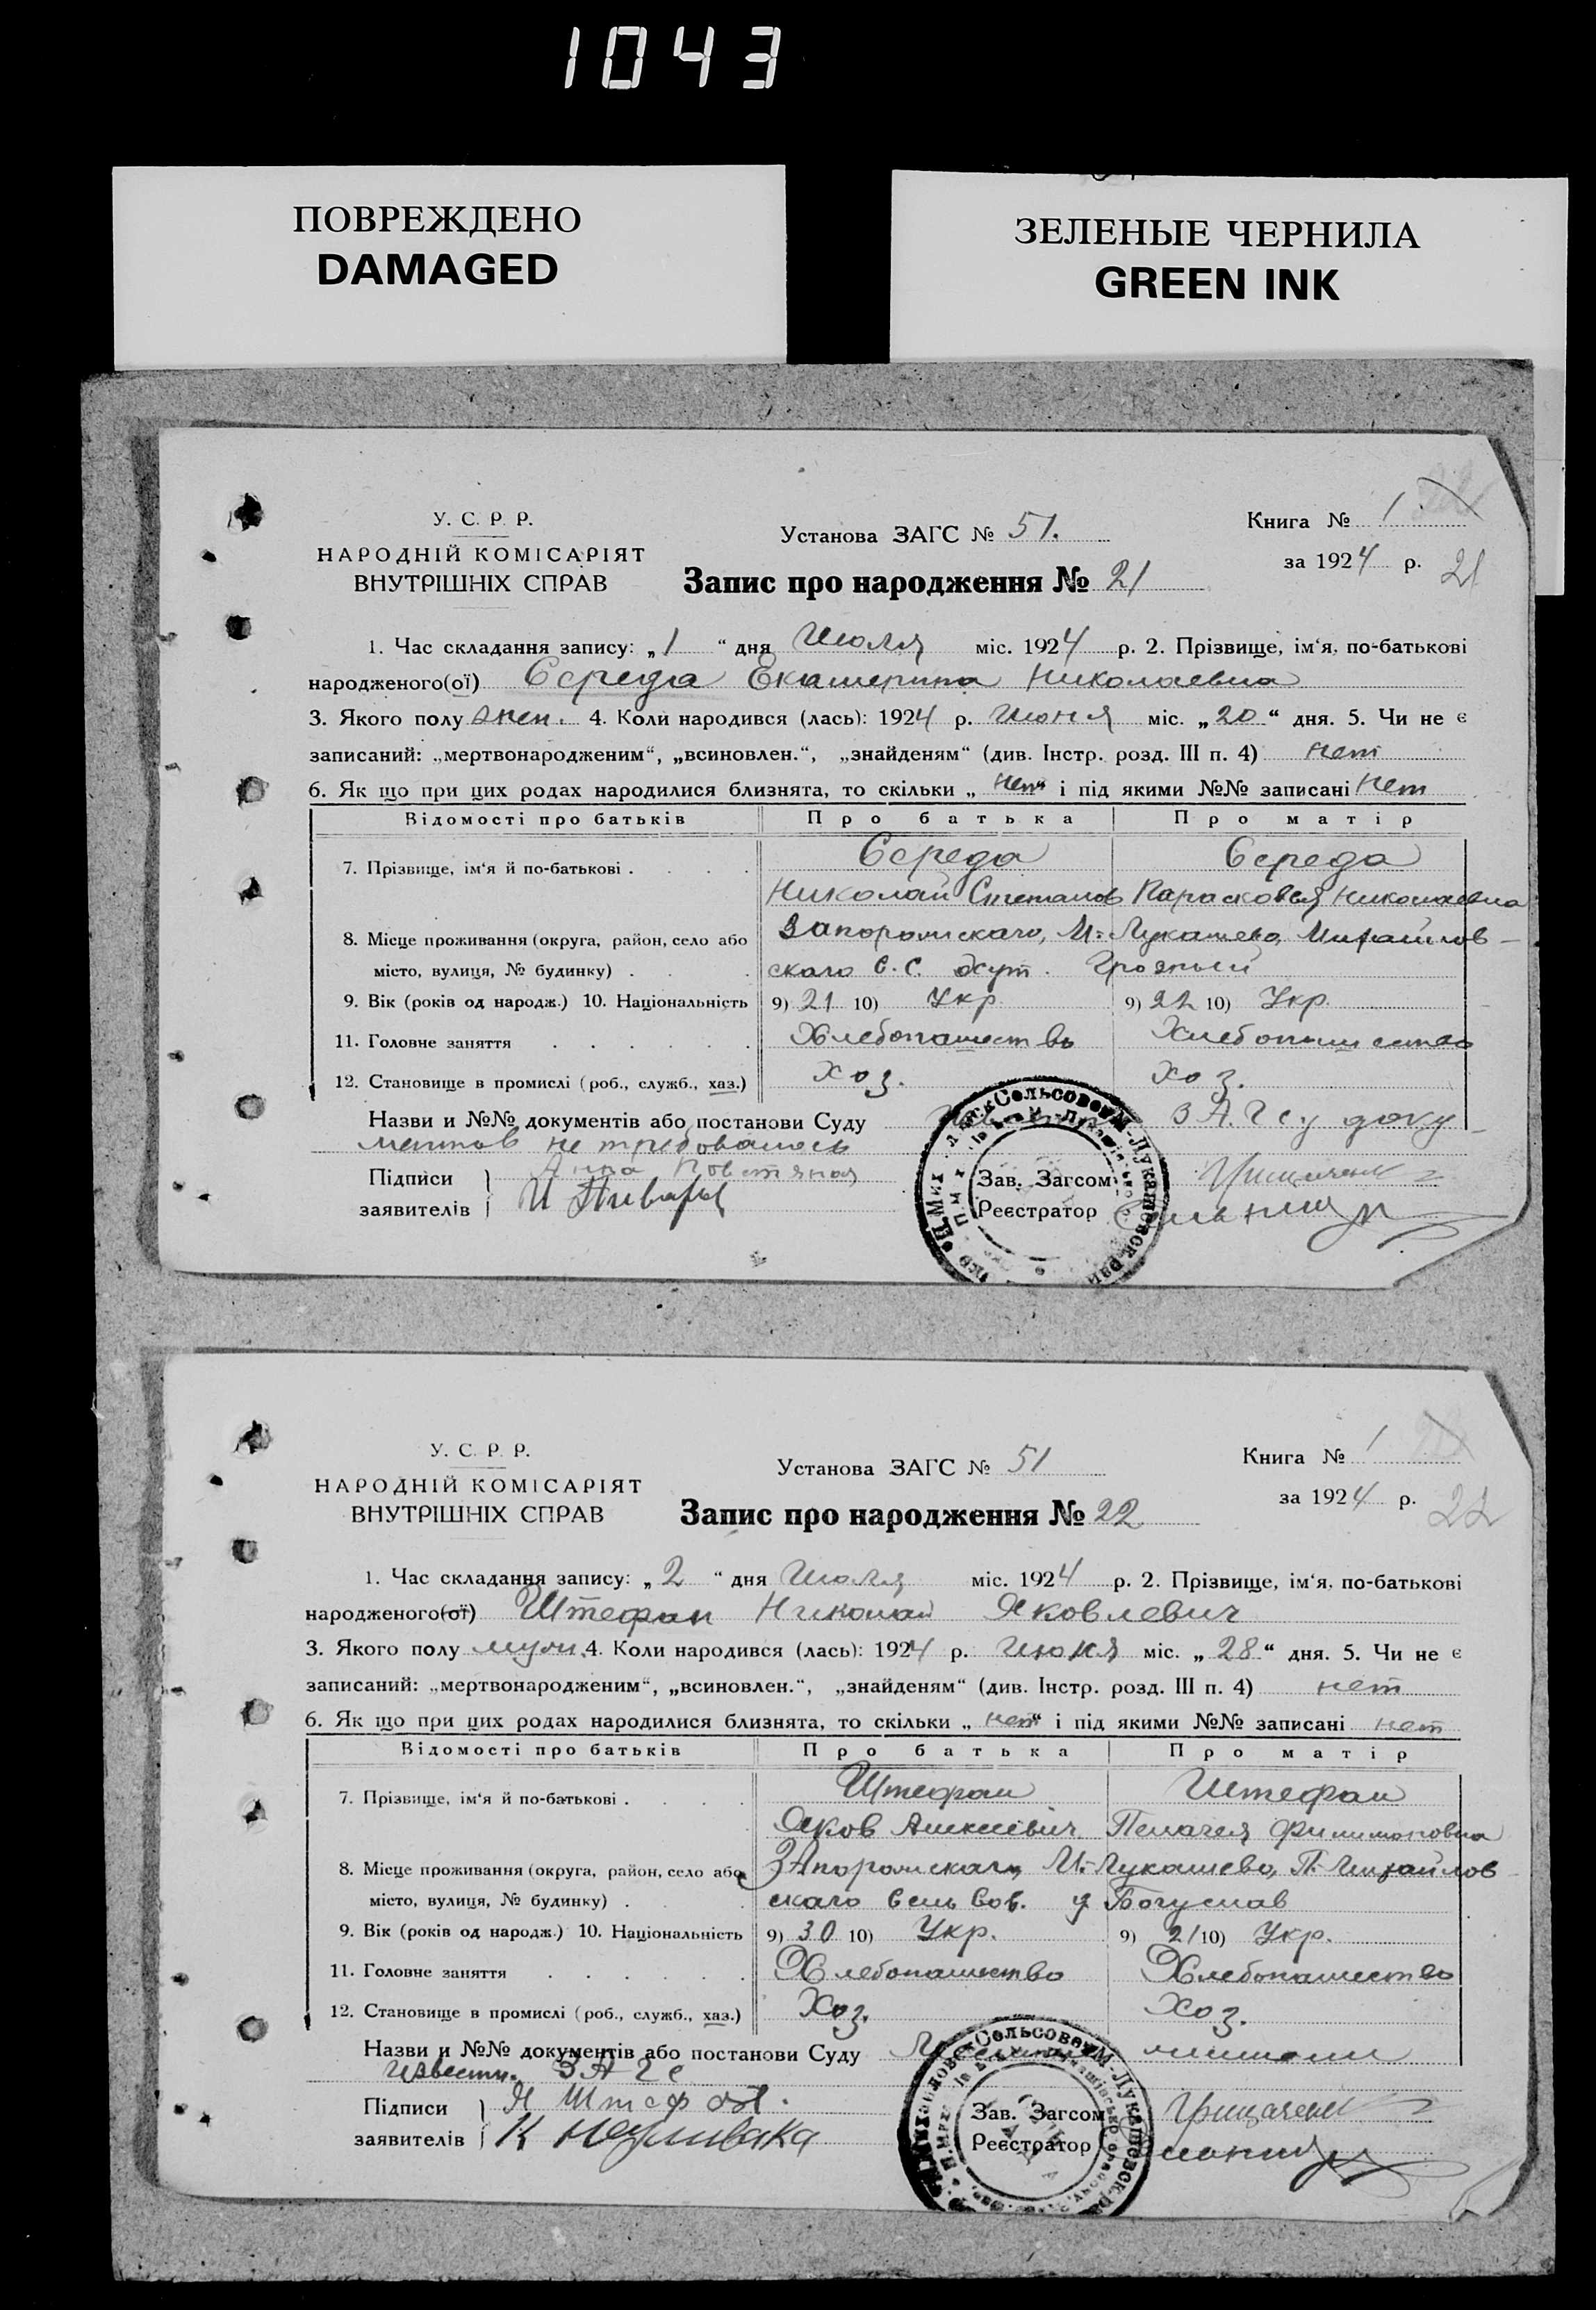 1043
ПОВРЕЖДЕНО
DAMAGED
ЗЕЛЕНЫЕ ЧЕРНИЛА
GREEN INK
У. С. Р. Р.
НАРОДНІЙ КОМІСАРІЯТ
ВНУТРІШНІХ СПРАВ
Установа ЗАГС № 51.
Запис про народження № 21
Книга № 1
за 1924 р.
21
1. Час складання запису: „ 1 “ дня Июля міс. 1924 р. 2. Прізвище, ім‘я, по-батькові
народженого(ої) Середа Екатерина Николаевна
3. Якого полу жен. 4. Коли народився (лась): 1924 р. Июня міс. „ 20 “ дня. 5. Чи не є
записаний: „мертвонародженим“, „всиновлен.“, „знайденям“ (див. Інстр. розд. III п. 4) нет
6. Як що при цих родах народилися близнята, то скільки „ нет “ і під якими №№ записані нет
Відомості про батьків Про батька Про матір
7. Прізвище, ім‘я й по-батькові . . . . Середа Середа
Николай Степанов Парасковья Николаевна
8. Місце проживання (округа, район, село або Запорожскаго, М.-Лукашево, Михайлов-
місто, вулиця, № будинку) . . скаго С.С. хут.
9. Вік (років од народж.) 10. Національність 9) 21 10) Укр 9) 22 10) Укр.
11. Головне заняття . . . . . . Хлебопашество Хлебопашество
12. Становище в промислі (роб., служб., хаз.) Хоз. Хоз.
Назви и №№ документів або постанови Суду ЗАГСу доку
ментов не требовалось
Підписи Анна
заявителів И Пивар
Зав. Загсом Грищенко
Реєстратор
У. С. Р. Р.
НАРОДНІЙ КОМІСАРІЯТ
ВНУТРІШНІХ СПРАВ
Установа ЗАГС № 51
Запис про народження № 22
Книга № 1
за 1924 р.
22
1. Час складання запису: „ 2 “ дня Июля міс. 1924 р. 2. Прізвище, ім‘я, по-батькові
народженого(ої) Штефан Николай Яковлевич
3. Якого полу муж. 4. Коли народився (лась): 1924 р. Июня міс. „ 28 “ дня. 5. Чи не є
записаний: „мертвонародженим“, „всиновлен.“, „знайденям“ (див. Інстр. розд. III п. 4) нет
6. Як що при цих родах народилися близнята, то скільки „ нет “ і під якими №№ записані нет
Відомості про батьків Про батька Про матір
7. Прізвище, ім‘я й по-батькові . . . . Штефан Штефан
Яков Алексеевич Пелагея Филимоновна
8. Місце проживання (округа, район, село або Запорожскаго, М.-Лукашево, П.-Михайлов-
місто, вулиця, № будинку) . . скаго Сель Сов. Богуслав
9. Вік (років од народж.) 10. Національність 9) 30 10) Укр. 9) 21 10) Укр.
11. Головне заняття . . . . . . Хлебопашество Хлебопашество
12. Становище в промислі (роб., служб., хаз.) Хоз. Хоз.
Назви и №№ документів або постанови Суду
известн. ЗАГС
Підписи Я Штефан.
заявителів К Неумивака
Зав. Загсом Грищенко
Реєстратор